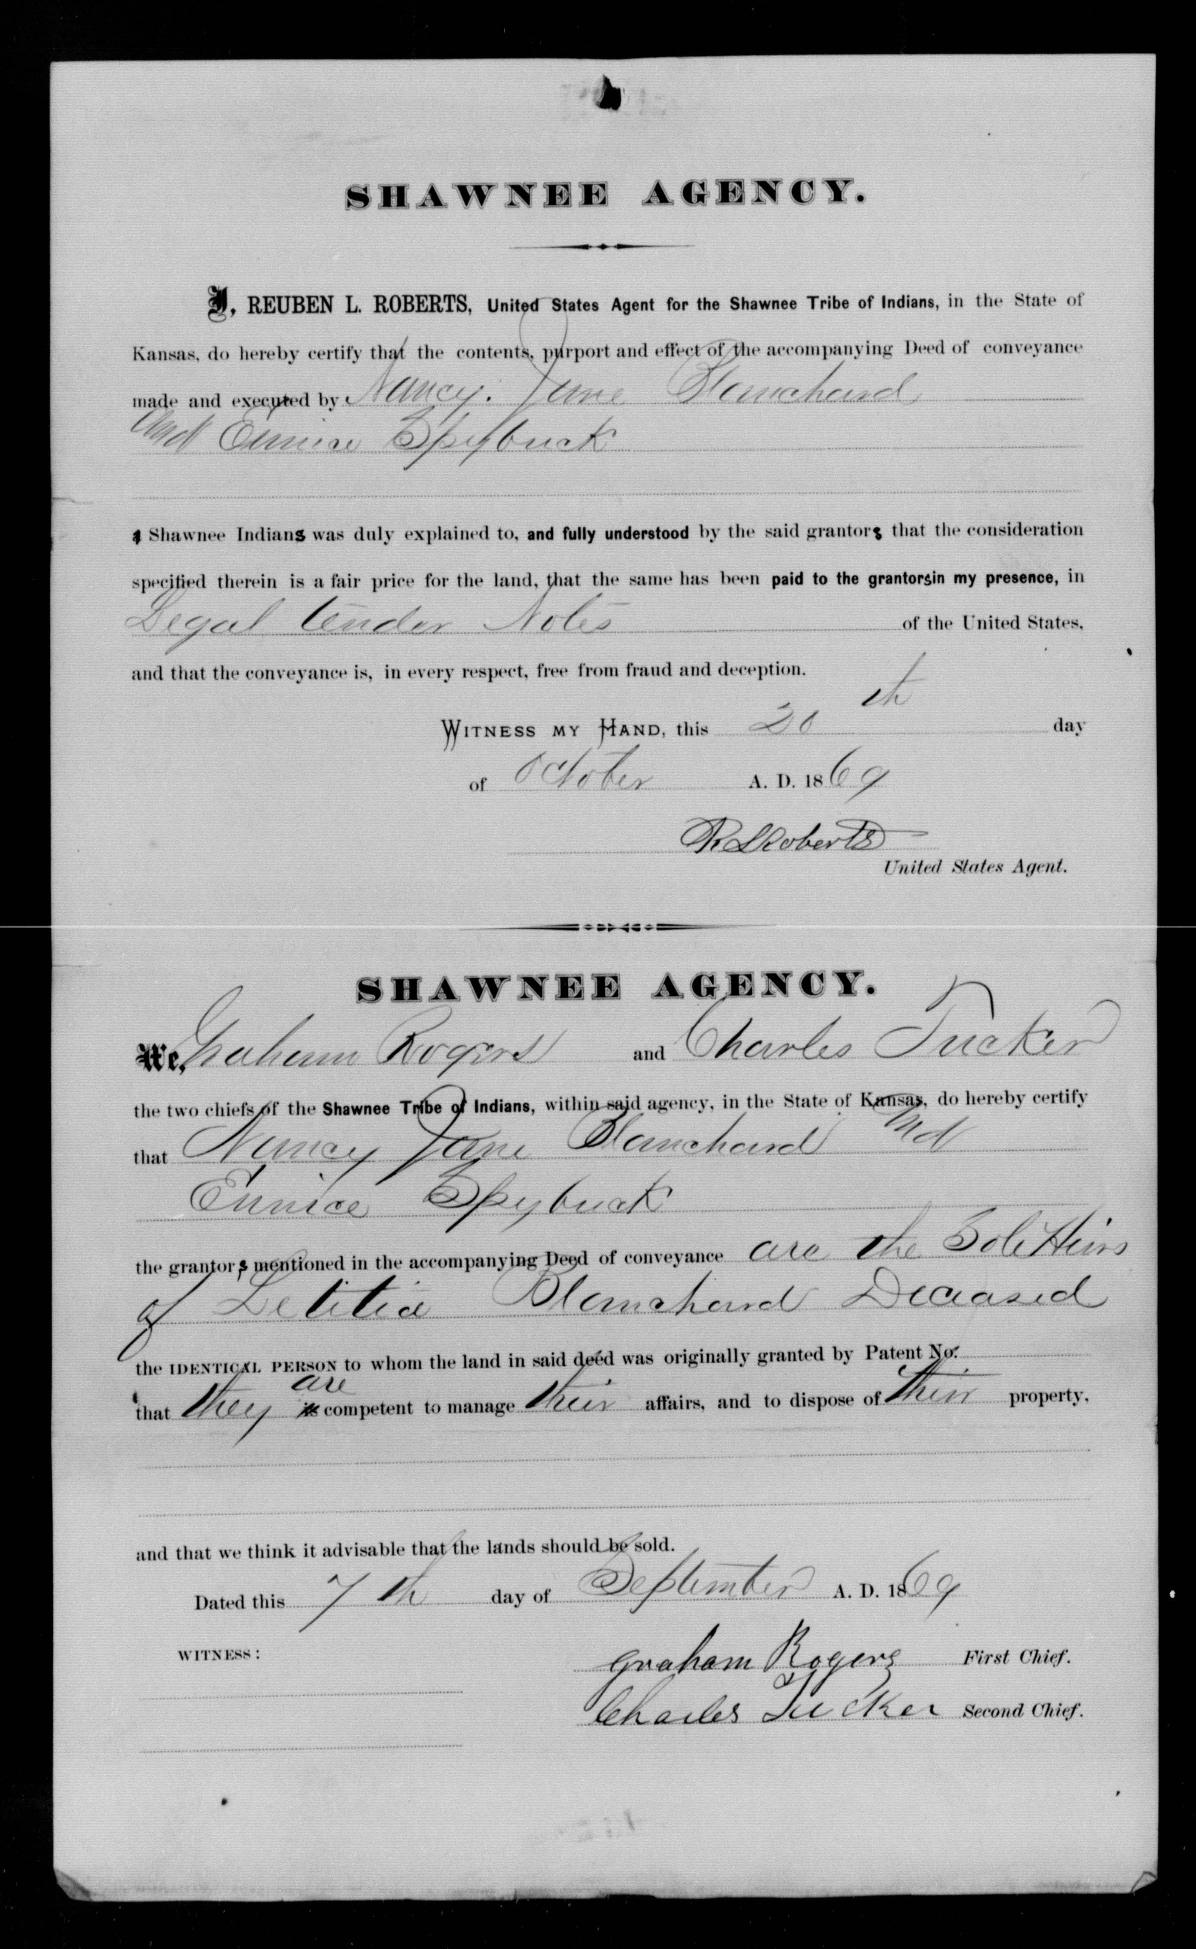 SHAWNEE AGENCY.
I, REUBEN L. ROBERTS, United States Agent for the Shawnee Tribe of Indians, in the State of
Kansas, do hereby certify that the contents, purport and effect of the accompanying Deed of conveyance
made and executed by Nancy Jane Blanchard
And Eunice Spybuck
a Shawnee Indians was duly explained to, and fully understood by the said grantors that the consideration
specified therein is a fair price for the land, that the same has been paid to the grantors in my presence, in
Legal tender Notes of the United States,
and that the conveyance is, in every respect, free from fraud and deception.
WITNESS MY HAND, this 20th day
of October A. D. 1869
R L Roberts
United States Agent.
SHAWNEE AGENCY.
We, Graham Rogers and Charles Tucker
the two chiefs of the Shawnee Tribe of Indians, within said agency, in the State of Kansas, do hereby certify
that Nancy Jane Blanchard And
Eunice Spybuck
the grantors mentioned in the accompanying Deed of conveyance are the Sole Heirs
of Letitia Blanchard Deceased
the IDENTICAL PERSON to whom the land in said deed was originally granted by Patent No.
are
that they is competent to manage their affairs, and to dispose of their property,
and that we think it advisable that the lands should be sold.
Dated this 7th day of September A. D. 1869
WITNESS:
Graham Rogers First Chief.
Charles Tucker Second Chief.